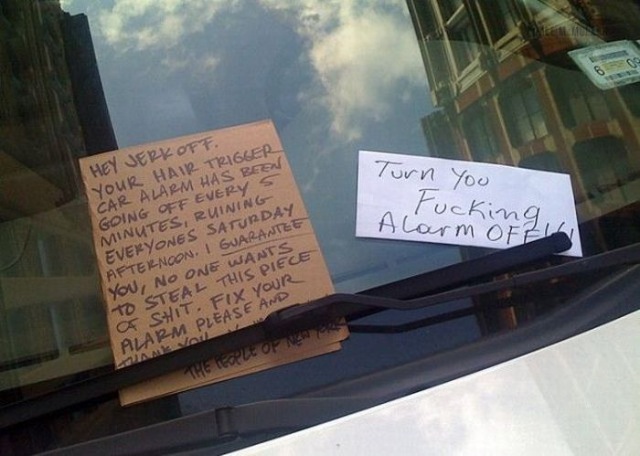 HEY JERK OFF.
YOUR HAIR TRIGGER
CAR ALARM HAS BEEN
GOING OFF EVERY 5
MINUTES, RUINING
EVERYONES SATURDAY
AFTERNOON. I GUARANTEE
YOU, NO ONE WANTS
TO STEAL THIS PIECE
OF SHIT. FIX YOUR
ALARM PLEASE AND
THANK YOU
THE PEOPLE OF NEW YORK
Turn You
Fucking
Alarm OFF!!
6